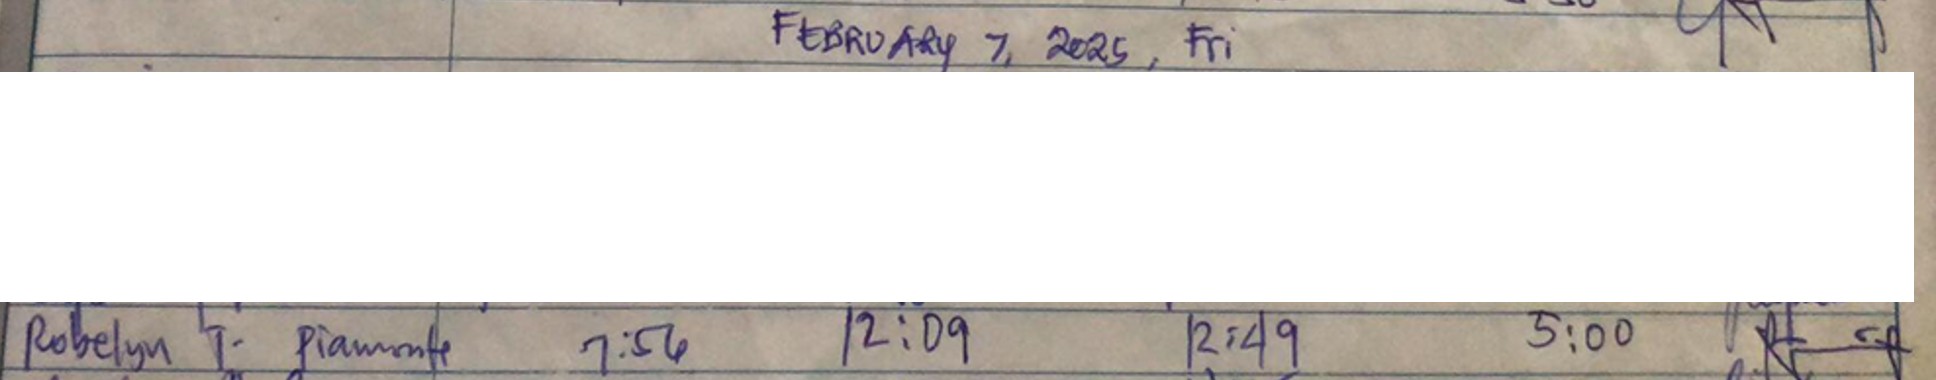 FEBRUARY 7, 2025, Fri
Robelyn T. Piamonte 7:56 12:09 12:49 5:00